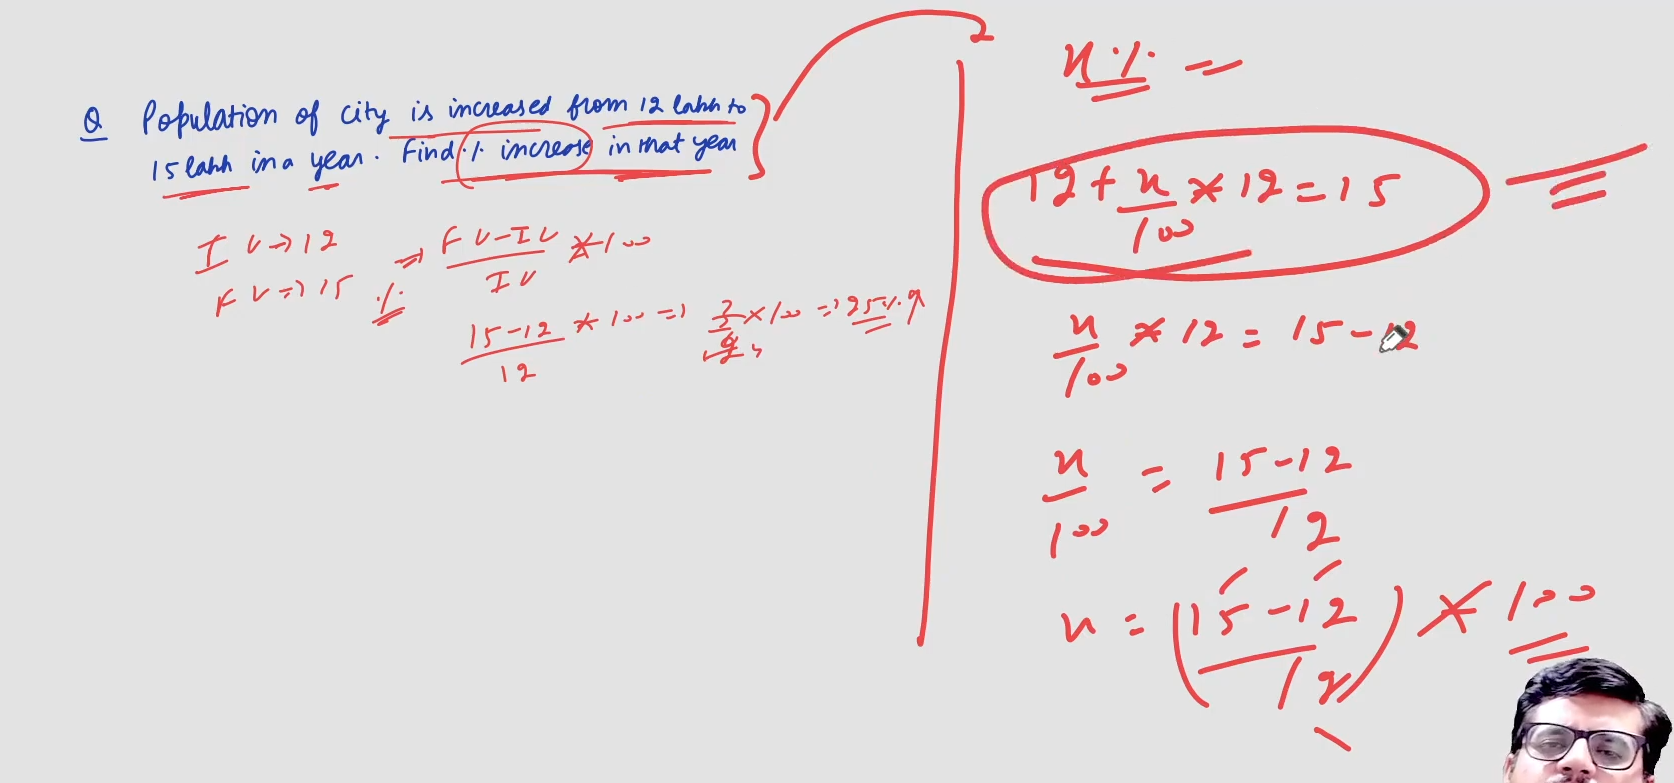 Q Population of city is increased from 12 lakh to
15 lakh in a year. Find % increase in that year
I V → 12
F V ⇒ 15
% ⇒ FV-IV / IV * 100
15-12 / 12 * 100 ⇒ 3 / 12 × 100 ⇒ 25% ↑
2
x% =
12 + x/100 * 12 = 15
x/100 * 12 = 15-12
x/100 = 15-12 / 12
x = (15-12 / 12) * 100